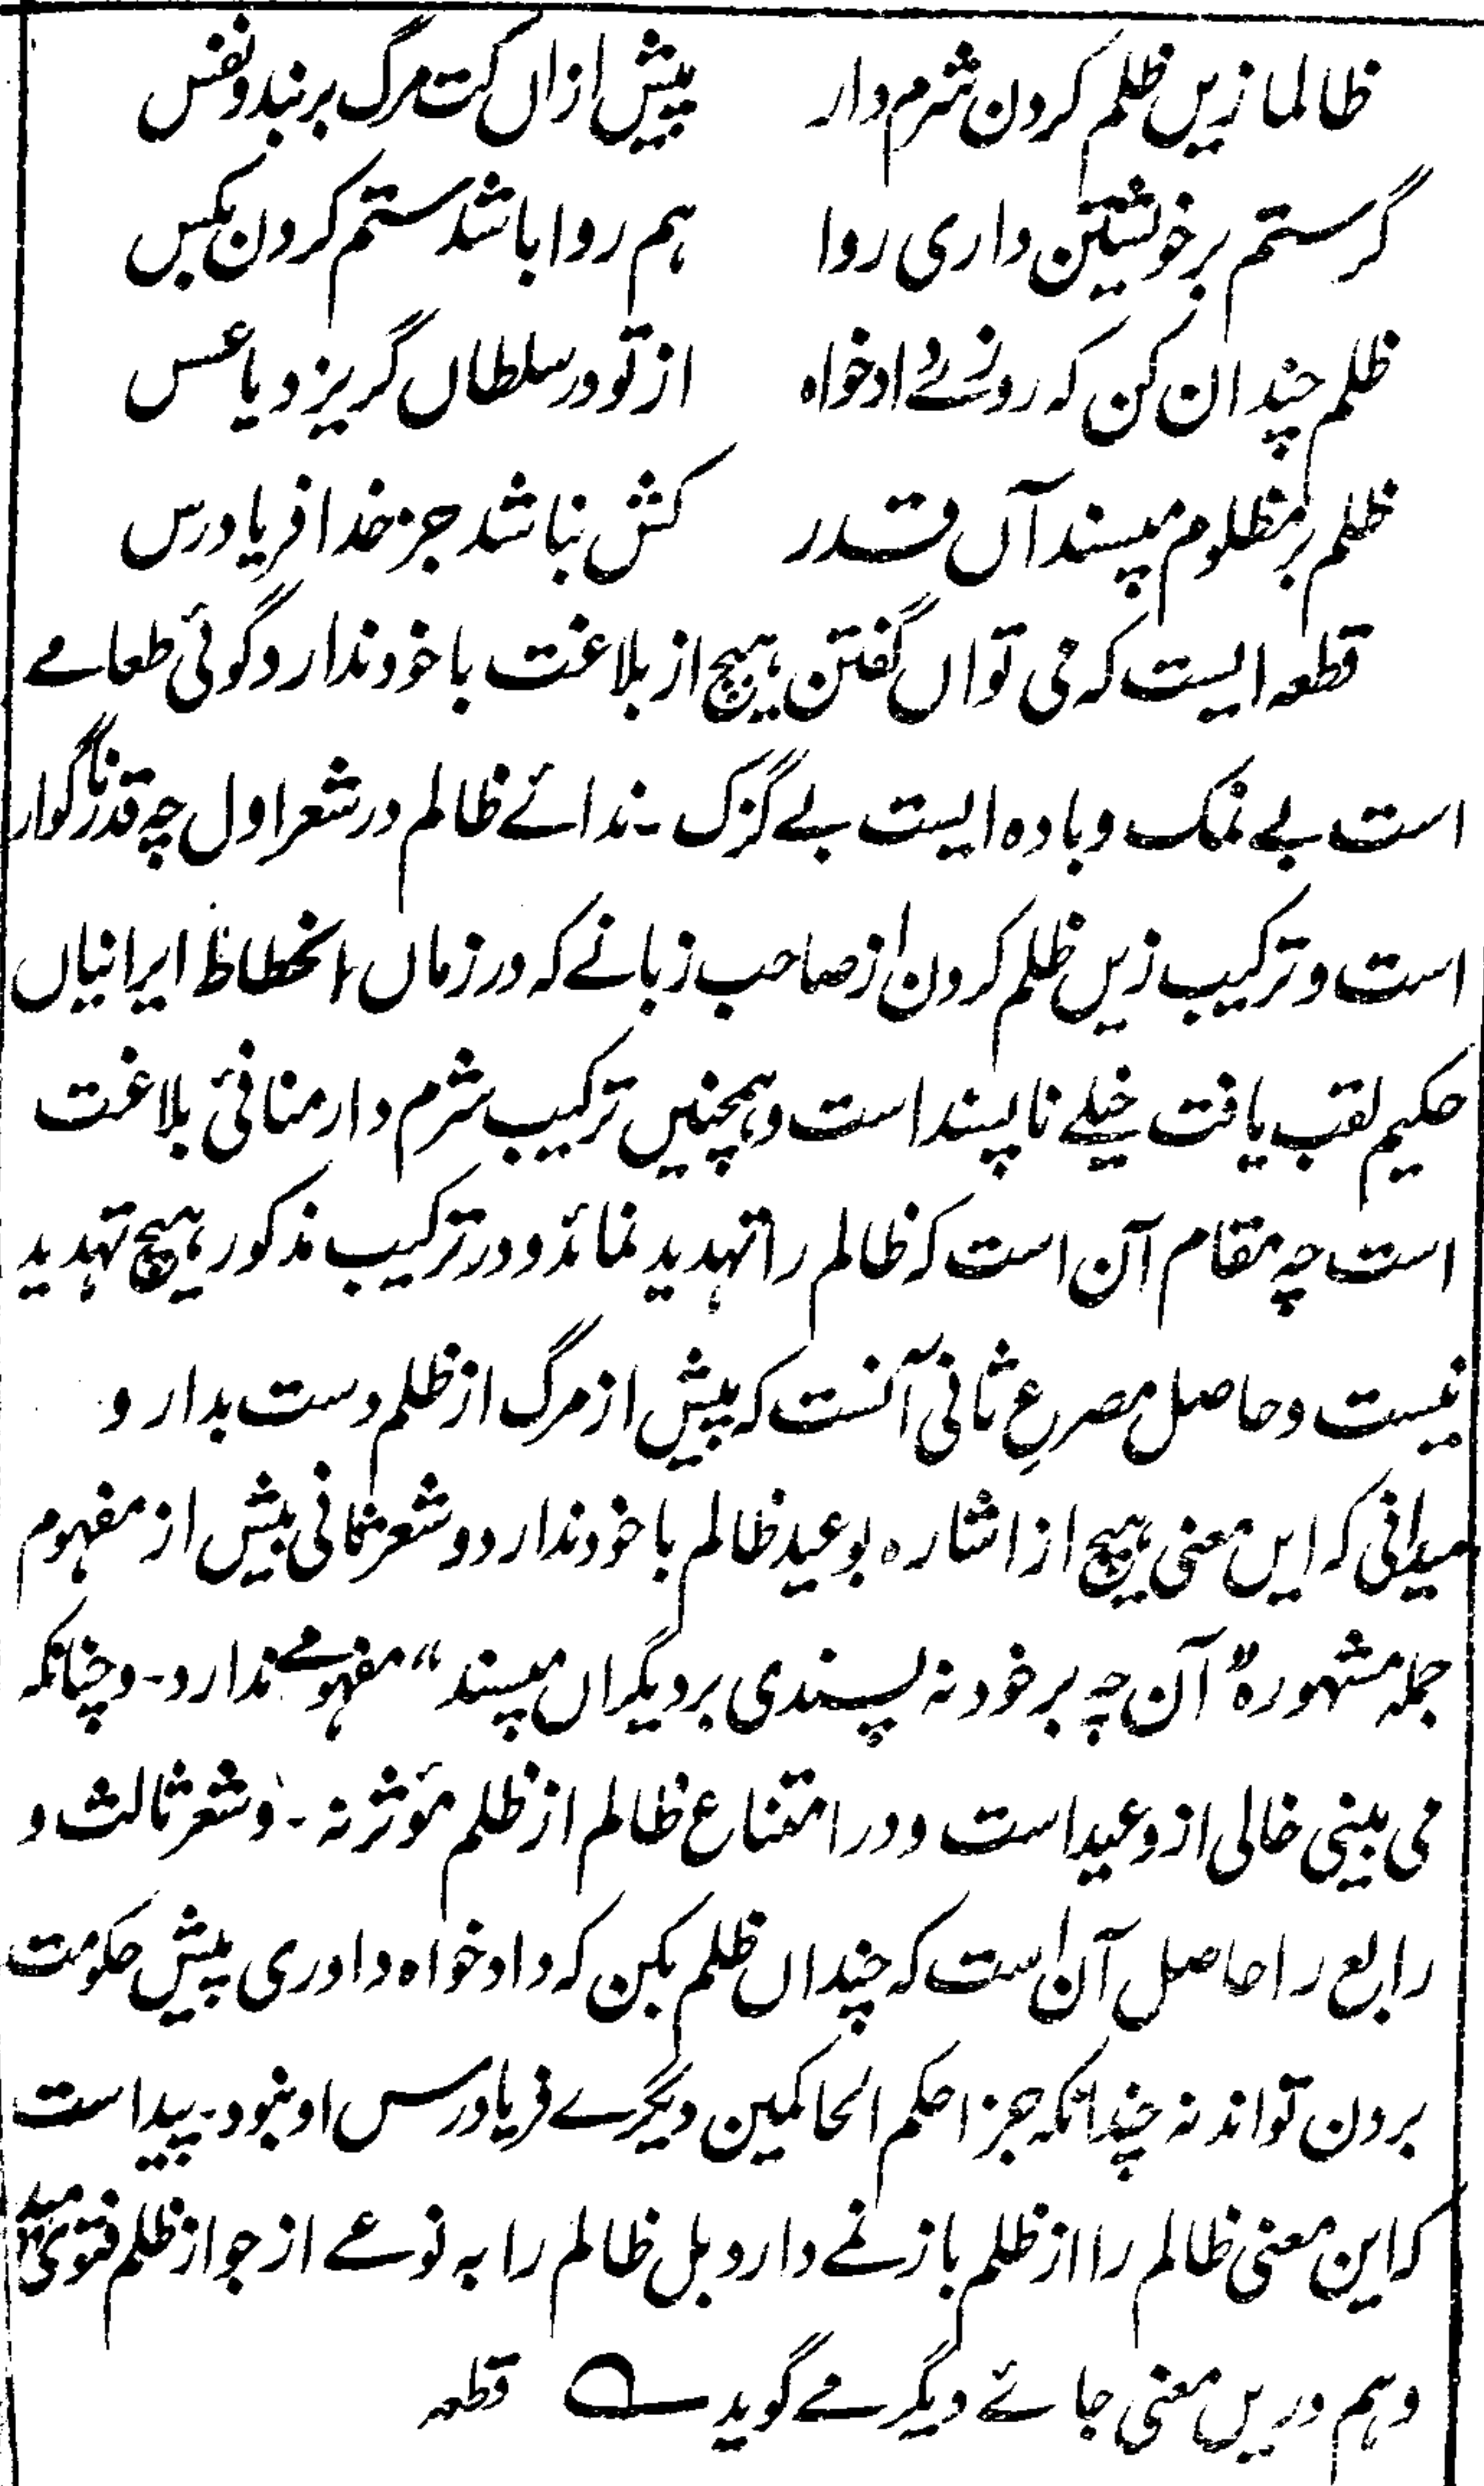 ظالما زیں ظلم کردن شرم دار پیش ازاں کت مرگ بر بندد نفس
گر ستم بر خویشتن داری روا ہم روا باشد ستم کردن بکس
ظلم چندان کن کہ روزے داد خواہ از تو در سلطاں گریزد یا عسس
ظلم بر مظلوم مپسند آں قدر کش نباشد جز خدا فریاد رس
قطعہ ایست کہ می تواں گفتن ہیچ از بلاغت با خود ندارد گوئی طعامے
است بے نمک و بادہ ایست بے گزک ۔ ندائے ظالم در شعر اول چہ قدر ناگوار
است و ترکیب زیں ظلم کردن از صاحب زبانے کہ در زماں انحطاط ایرانیاں
حکیم لقب یافت خیلے ناپسند است و ہمچنیں ترکیب شرم دار منافئ بلاغت
است چہ مقام آن است کہ ظالم را تہدید نمائد و در ترکیب مذکور ہیچ تہدید
نیست و حاصل مصرعِ ثانی آنست کہ پیش از مرگ از ظلم دست بدار و
میدانی کہ ایں معنی ہیچ از اشارہ بوعید ظالم با خود ندارد و شعر ثانی بیش از مفہوم
جملہ مشہورہ "آن چہ بر خود نہ پسندی بر دیگراں مپسند" مفہومے ندارد ۔ و چنانکہ
می بینی خالی از وعید است و در امتناع ظالم از ظلم مؤثر نہ ۔ و شعر ثالث و
رابع را حاصل آن است کہ چنداں ظلم بکن کہ داد خواہ داوری پیش حکومت
بردن تواند نہ چندانکہ جز احکم الحاکمین دیگرے فریاد رس او نبود ۔ پیدا است
کہ این معنی ظالم را از ظلم باز نمے دارد بل ظالم را بہ نوعے از جواز ظلم فتویٰ مید
و ہم دریں معنی جائے دیگر مے گوید ؎ قطعہ